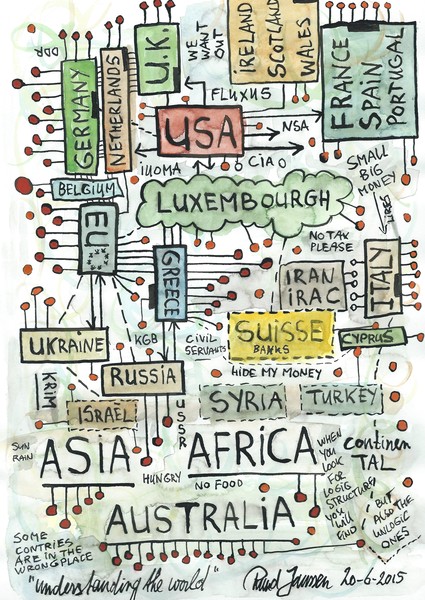 DDR
GERMANY
NETHERLANDS
U.K.
WE
WANT
OUT
IRELAND
SCOTLAND
WALES
FRANCE
SPAIN
PORTUGAL
FLUXUS
USA
NSA
CIAO
BELGIUM
LUXEMBOURGH
SMALL
BIG
MONEY
EU
GREECE
NO TAX
PLEASE
IRAN
IRAC
ITALY
UKRAINE
KGB
CIVIL
SERVANTS
SUISSE
BANKS
CYPRUS
HIDE MY MONEY
KRIM
RUSSIA
ISRAEL
USSR
SYRIA
TURKEY
SUN
RAIN
ASIA
AFRICA
HUNGRY
NO FOOD
WHEN
YOU
LOOK
FOR
LOGIC
STRUCTURES
YOU
WILL
FIND
continen
TAL
BUT
ALSO THE
UNLOGIC
ONES
AUSTRALIA
SOME
CONTRIES
ARE IN THE
WRONG PLACE
"understanding the world"
Ruud Janssen 20-6-2015